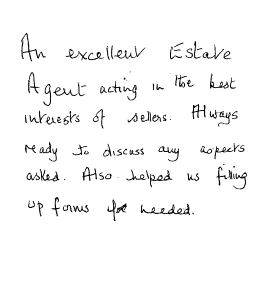 An excellent Estate
Agent acting in the best
interests of sellers. Always
ready to discuss any aspects
asked. Also helped us filling
up forms if needed.